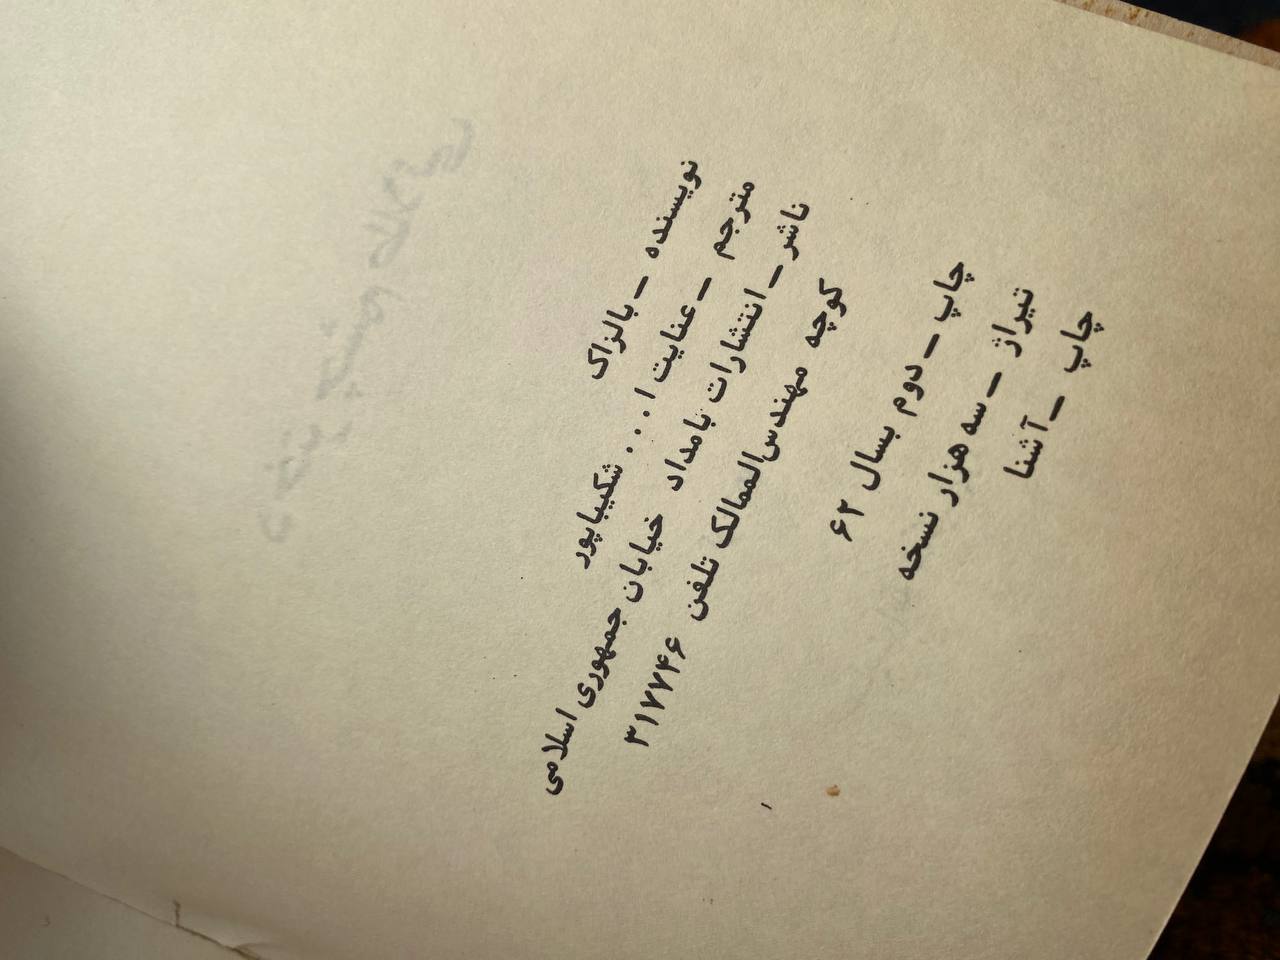 نویسنده ــ بالزاک
مترجم ــ عنایت ا... شکیباپور
ناشر ــ انتشارات بامداد خیابان جمهوری اسلامی
کوچه مهندس‌الممالک تلفن ۳۱۷۷۴۶
چاپ ــ دوم بسال ۶۲
تیراژ ــ سه هزار نسخه
چاپ ــ آشنا